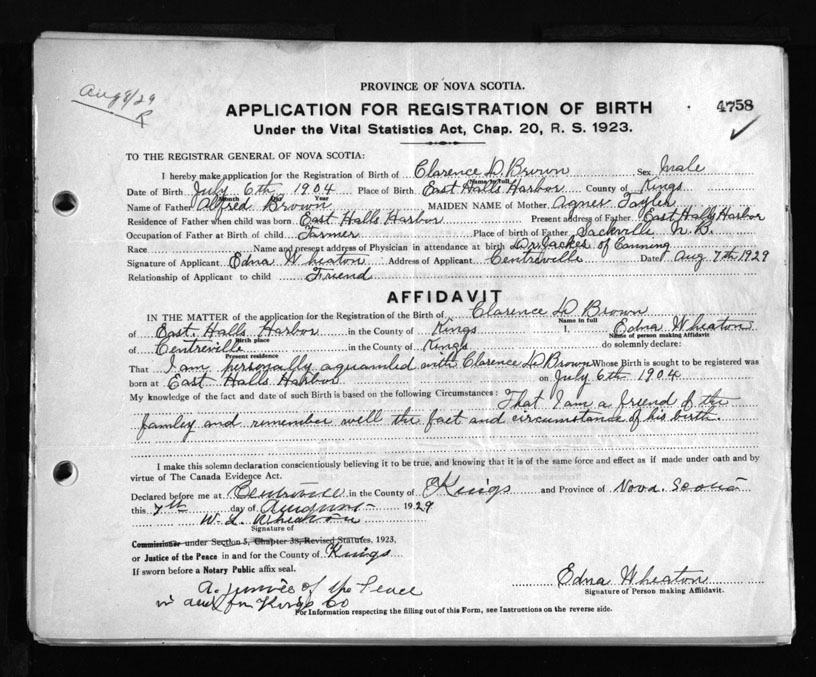 Aug 8/29
R
PROVINCE OF NOVA SCOTIA.
APPLICATION FOR REGISTRATION OF BIRTH
4758
Under the Vital Statistics Act, Chap. 20, R. S. 1923.
TO THE REGISTRAR GENERAL OF NOVA SCOTIA:
I hereby make application for the Registration of Birth of Clarence D. Brown Sex Male
Name in full
Date of Birth July 6th 1904 Place of Birth East Halls Harbor County of Kings
Month Day Year
Name of Father Alfred Brown MAIDEN NAME of Mother Agnes Taylor
Residence of Father when child was born East Halls Harbor Present address of Father East Halls Harbor
Occupation of Father at Birth of child Farmer Place of birth of Father Sackville N.B.
Race Name and present address of Physician in attendance at birth Dr. Jackes of Canning
Signature of Applicant Edna Wheaton Address of Applicant Centreville Date Aug 7th 1929
Relationship of Applicant to child Friend
AFFIDAVIT
IN THE MATTER of the application for the Registration of the Birth of Clarence D Brown
Name in full
of East Halls Harbor in the County of Kings I, Edna Wheaton
Birth place Name of person making Affidavit
of Centreville in the County of Kings do solemnly declare:
Present residence
That I am personally aquainted with Clarence D Brown Whose Birth is sought to be registered was
born at East Halls Harbor on July 6th 1904
My knowledge of the fact and date of such Birth is based on the following Circumstances: That I am a friend of the
famley and remember well the fact and circumstance of his birth.
I make this solemn declaration conscientiously believing it to be true, and knowing that it is of the same force and effect as if made under oath and by
virtue of The Canada Evidence Act.
Declared before me at Centreville in the County of Kings and Province of Nova Scotia
this 7th day of August 1929
W. L. Wheaton
Signature of
Commissioner under Section 5, Chapter 38, Revised Statutes, 1923,
or Justice of the Peace in and for the County of Kings
If sworn before a Notary Public affix seal.
Edna Wheaton
Signature of Person making Affidavit.
A. Justice of the Peace
in and for Kings Co
For Information respecting the filling out of this Form, see Instructions on the reverse side.